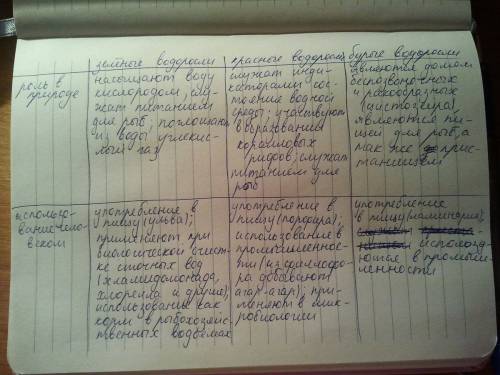 зелёные водоросли
красные водоросли
бурые водоросли
роль в
природе
насыщают воду
кислородом, слу-
жат питанием
для рыб; поглощают
из воды углекис-
лый газ
служат инди-
каторами сос-
тояния водной
среды; участвуют
в образовании
коралловых
рифов; служат
питанием для
рыб
являются домом
беспозвоночных
и ракообразных
(цистозейра),
являются пи-
щей для рыб, а
так же прис-
танищем
использо-
вание чело-
веком
употребление в
пищу (ульва);
применяют при
биологической очист-
ке сточных вод
(хламидомонада,
хлорелла и другие),
использование как
корм в рыбохозяйс-
твенных водоёмах
употребление в
пищу (порфира);
использование в
промышленнос-
ти (из филлофо-
ра добывают
агар-агар); при-
меняют в мик-
робиологии
употребление
в пищу (ламинария),
использу-
ются в промыш-
ленности